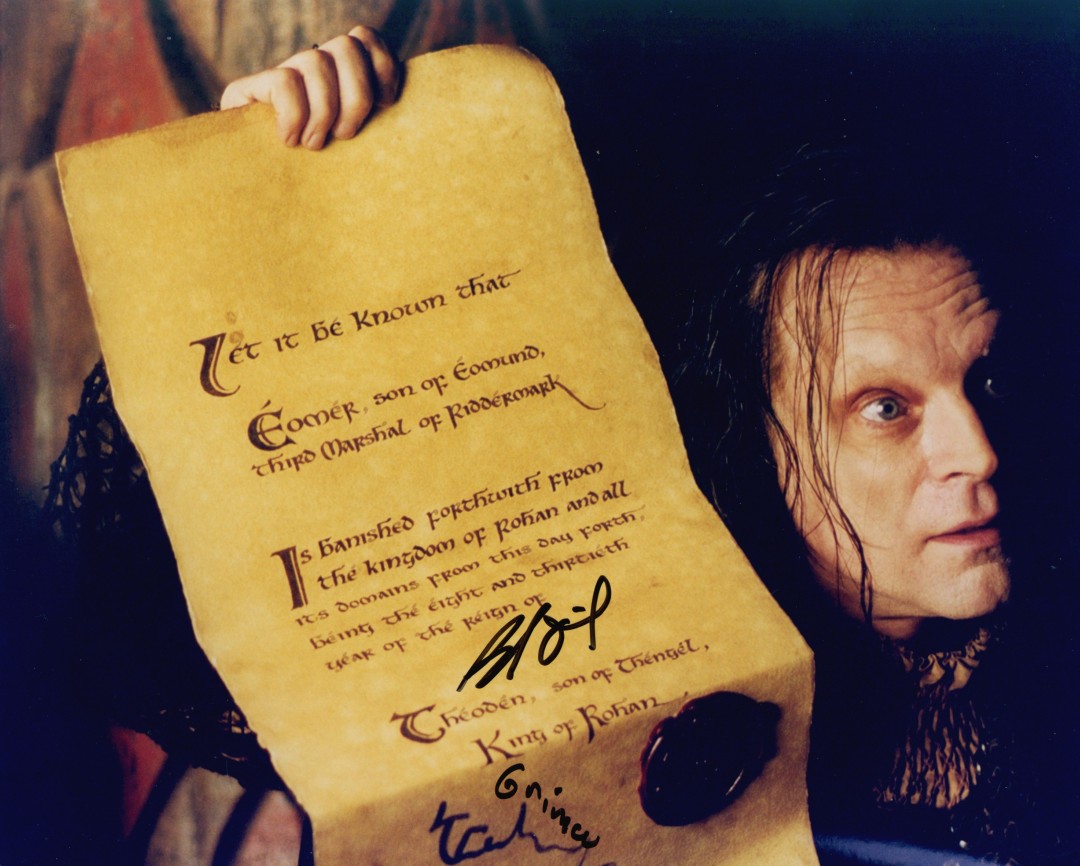 Let it be known that
Éomer, son of Éomund,
third Marshal of Riddermark
Is banished forthwith from
the kingdom of Rohan and all
its domains from this day forth,
being the eight and thirtieth
year of the reign of
Théoden, son of Thengel,
King of Rohan